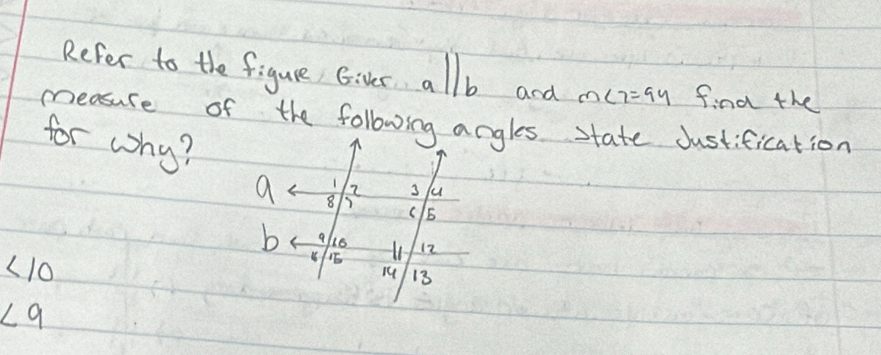 Refer to the figure, Given a||b and m<7=94 find the
measure of the following angles. State Justification
for why?
a 1 2 3 4
8 7 6 5
b 9 10 11 12
16 15 14 13
<10
<9